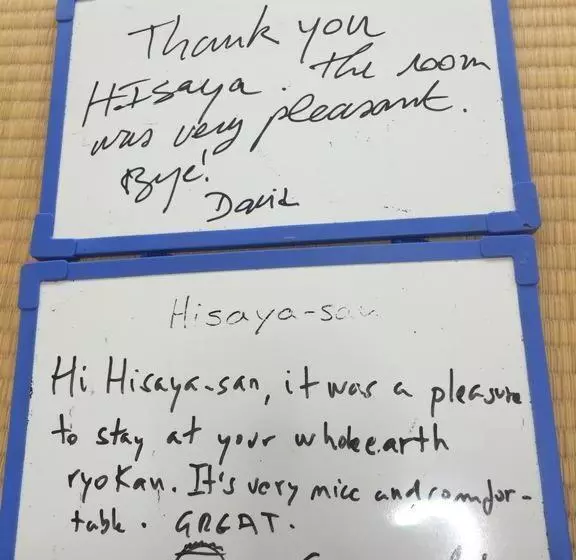 Thank you
HIsaya. The room
was very pleasant.
Bye!
David
Hisaya-san
Hi Hisaya-san, it was a pleasure
to stay at your wholeearth
ryokan. It's very nice and comfor-
table. GREAT.